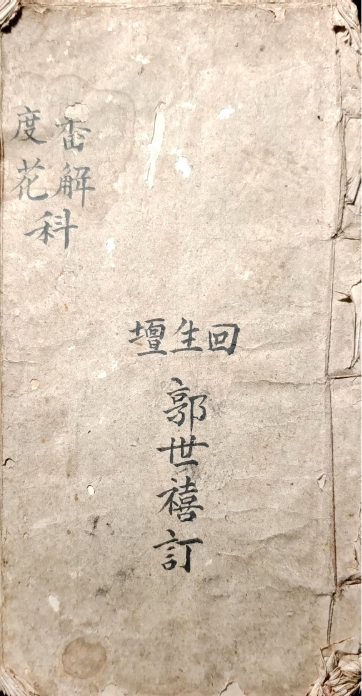 回生壇
郭世禧訂
解
度花
科